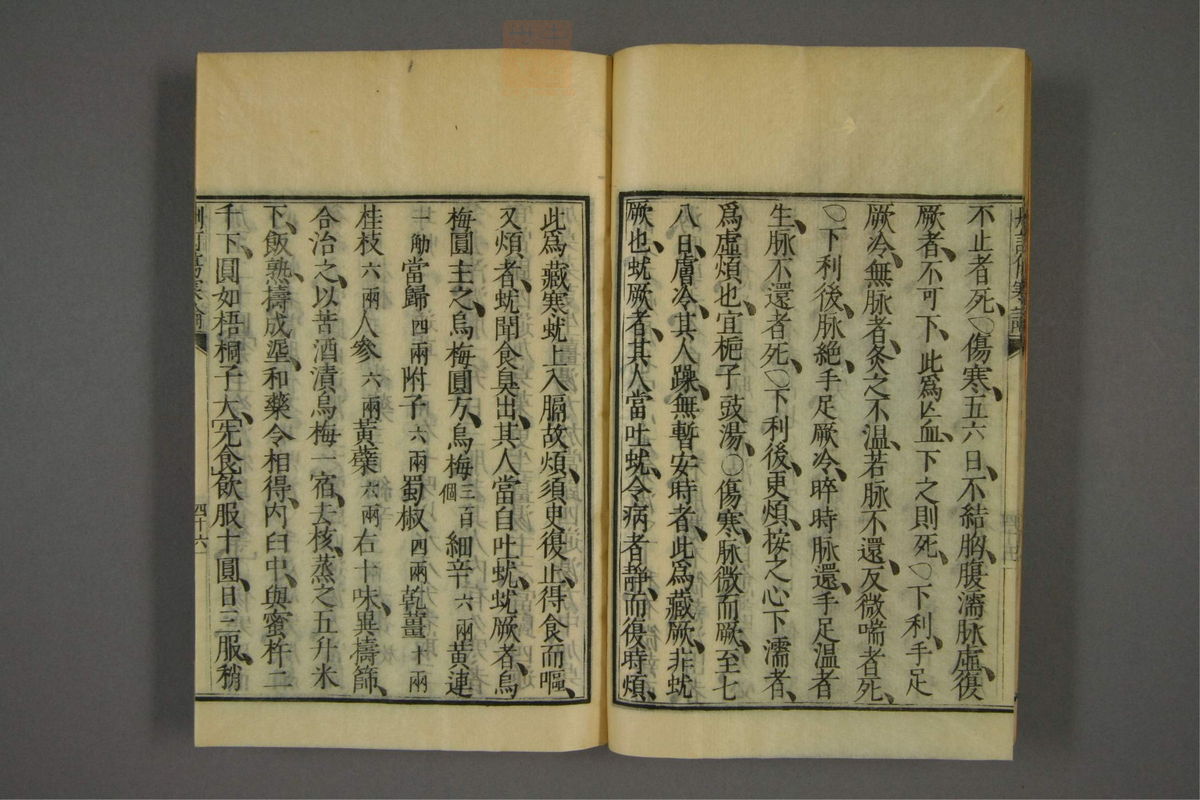 不止者死、○傷寒五六日、不結胸、腹濡、脉虛、復
厥者、不可下、此爲亡血、下之則死、○下利、手足
厥冷、無脉者、灸之不溫、若脉不還、反微喘者死、
○下利後、脉絶、手足厥冷、晬時脉還、手足溫者
生、脉不還者死、○下利後更煩、按之心下濡者、
爲虛煩也、宜梔子豉湯、○傷寒、脉微而厥、至七
八日、膚冷、其人躁、無暫安時者、此爲藏厥、非蚘
厥也、蚘厥者、其人當吐蚘、令病者靜、而復時煩、
此爲藏寒、蚘上入膈、故煩、須臾復止、得食而嘔、
又煩者、蚘聞食臭出、其人當自吐蚘、蚘厥者、烏
梅圓主之、烏梅圓方、烏梅三百個細辛六兩黃連
一觔當歸四兩附子六兩蜀椒四兩乾薑十兩
桂枝六兩人參六兩黃蘗六兩右十味、異擣篩、
合治之、以苦酒漬烏梅一宿、去核、蒸之五升米
下、飯熟、擣成埿、和藥令相得、內臼中、與蜜杵二
千下、圓如梧桐子大、先食飮服十圓、日三服、稍
四十六